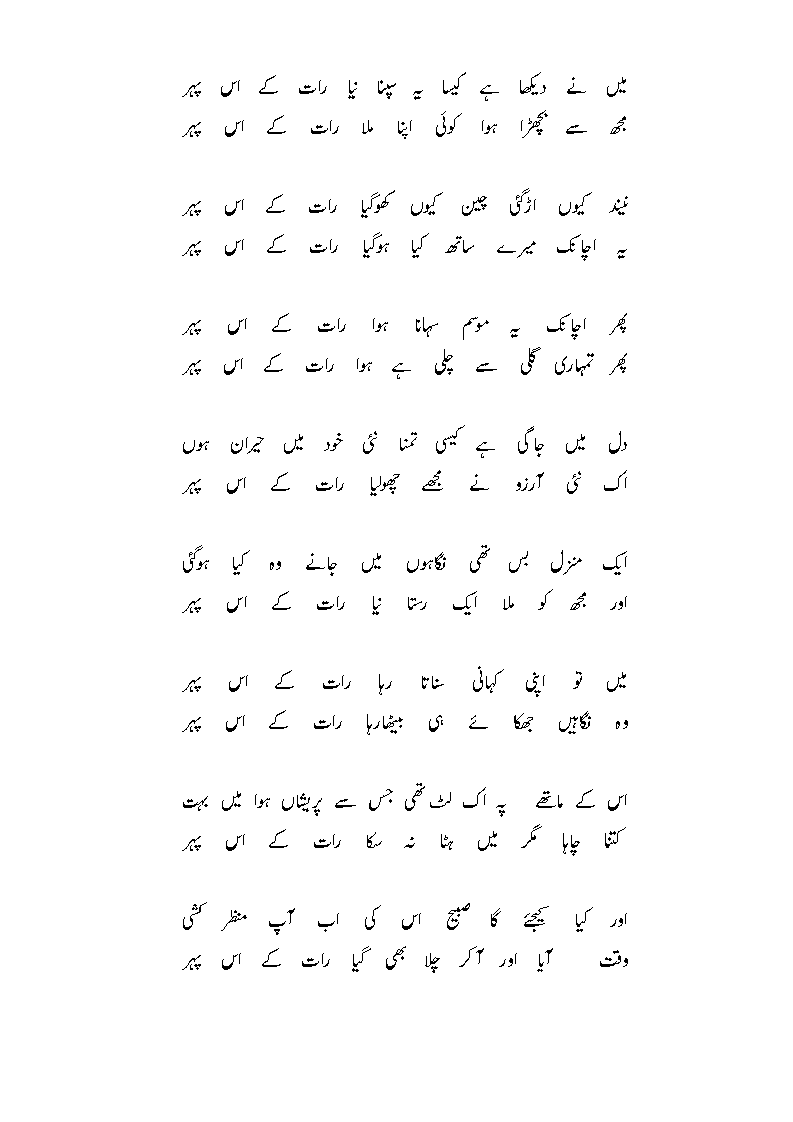 میں نے دیکھا ہے کیسا یہ سپنا نیا رات کے اس پہر
مجھ سے بچھڑا ہوا کوئی اپنا ملا رات کے اس پہر
نیند کیوں اڑگئی چین کیوں کھوگیا رات کے اس پہر
یہ اچانک میرے ساتھ کیا ہوگیا رات کے اس پہر
پھر اچانک یہ موسم سہانا ہوا رات کے اس پہر
پھر تمہاری گلی سے چلی ہے ہوا رات کے اس پہر
دل میں جاگی ہے کیسی تمنا نئی خود میں حیران ہوں
اک نئی آرزو نے مجھے چھولیا رات کے اس پہر
ایک منزل بس تھی نگاہوں میں جانے وہ کیا ہوگئی
اور مجھ کو ملا ایک رستا نیا رات کے اس پہر
میں تو اپنی کہانی سناتا رہا رات کے اس پہر
وہ نگاہیں جھکا ئے ہی بیٹھارہا رات کے اس پہر
اس کے ماتھے پہ اک لٹ تھی جس سے پریشاں ہوا میں بہت
کتنا چاہا مگر میں ہٹا نہ سکا رات کے اس پہر
اور کیا کیجئے گا صبیح اس کی اب آپ منظر کشی
وقت آیا اور آکر چلا بھی گیا رات کے اس پہر